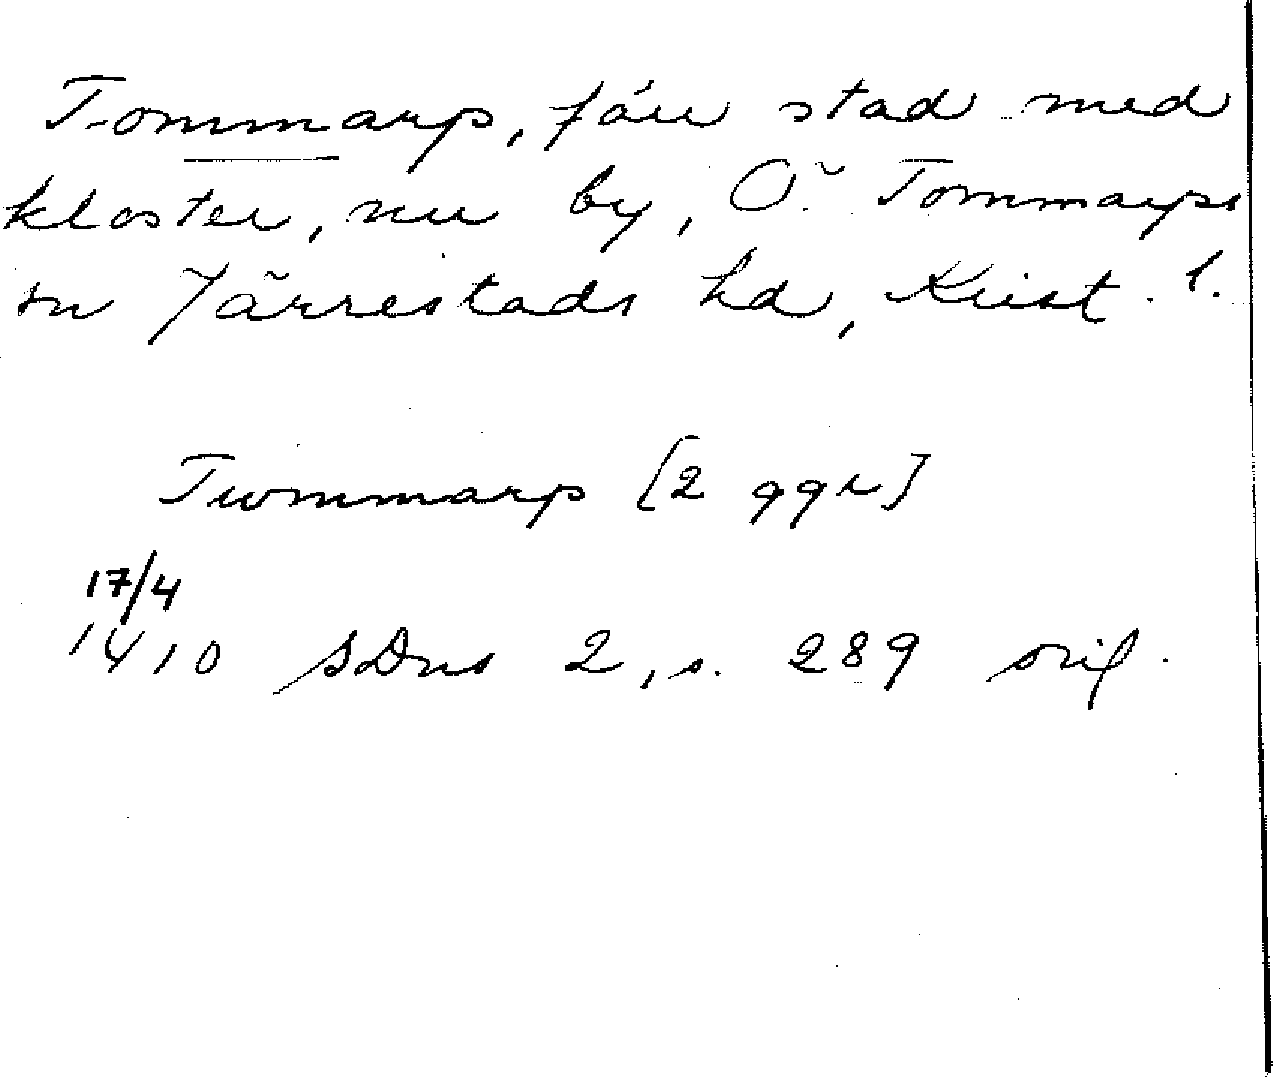 Tommarp, förr stad med
kloster, nu by, Ö. Tommarps
sn Järrestads hd, Krist. l.
Twmmarp [2 ggr]
17/4
1410 SDns 2, s. 289 orig.